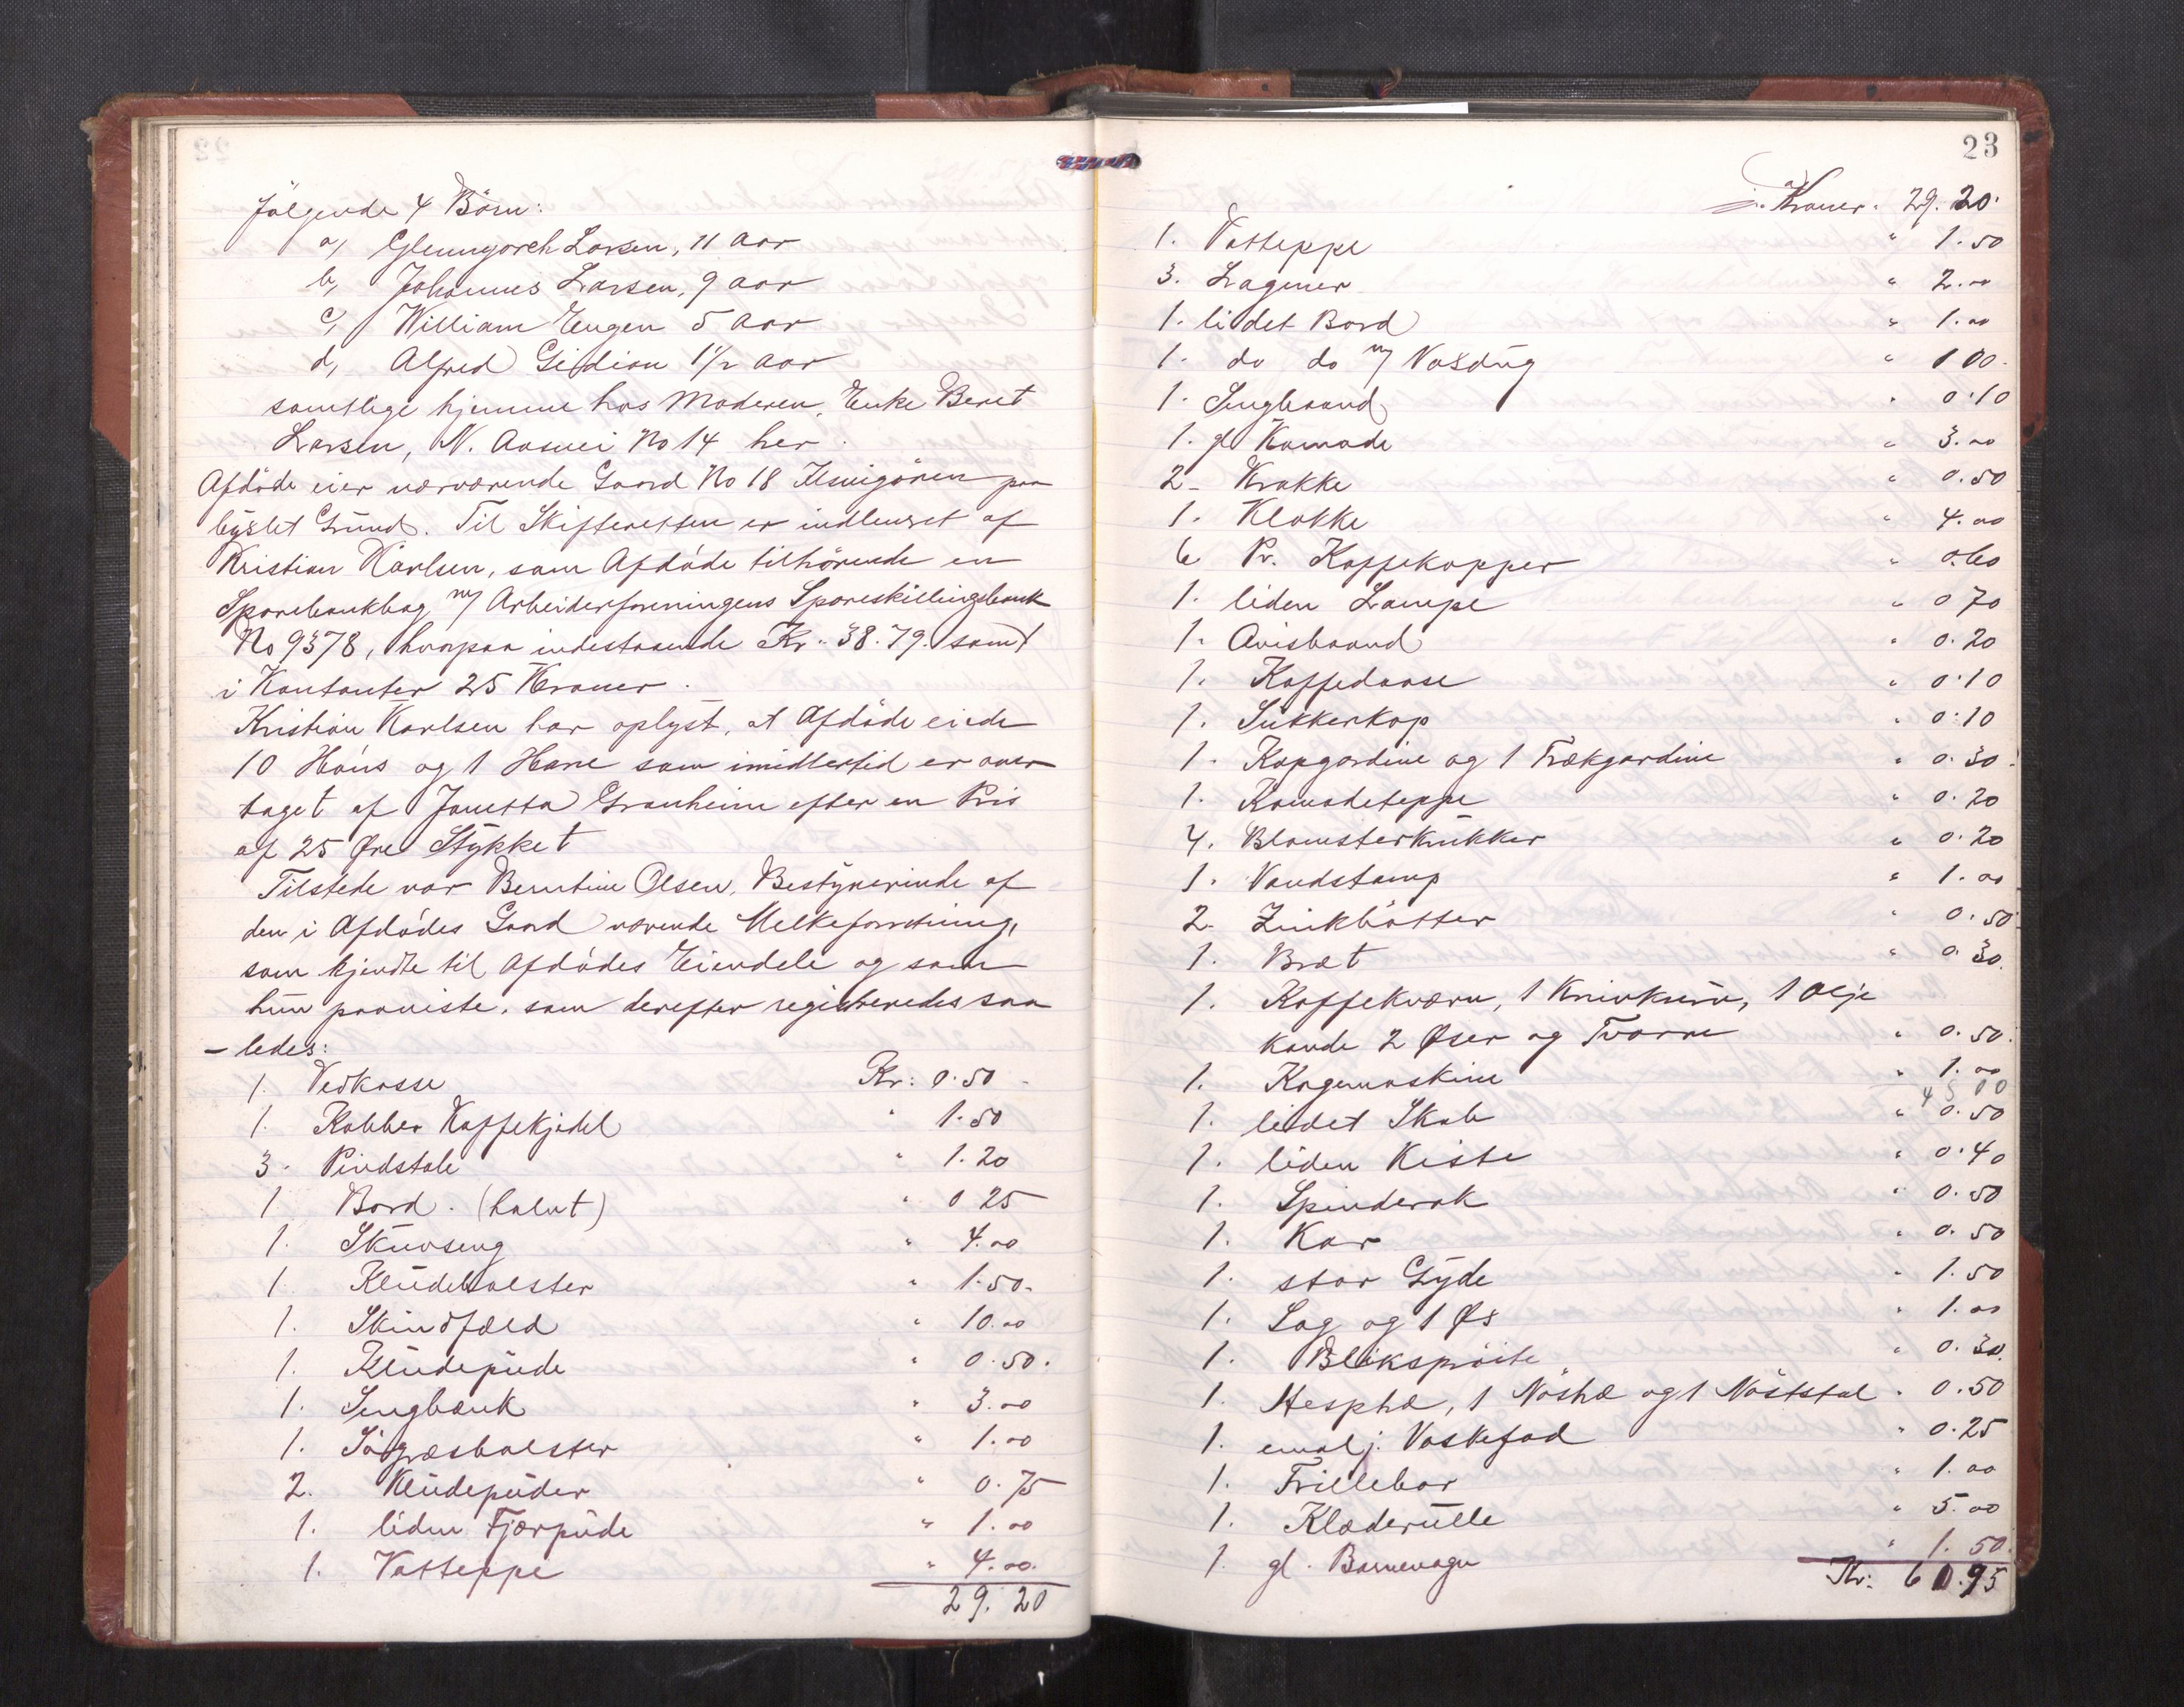 følgende 4 Børn:
a, Glenngorch Larsen, 11 Aar
b, Johannes Larsen, 9 aar
c, William Eugen 5 Aar
d, Alfred Gidion 1 1/2 Aar
samtlige hjemme hos Moderen, Enke Beret
Larsen, N. Aasvei No 14 her.
Afdøde eier nærværende Gaard No 18 Ilsvigøren paa
bygslet Grund. Til Skifteretten er indleveret af
Kristian Karlsen, som Afdøde tilhørende en
Sparebankbog m/ Arbeiderforeningens Spareskillingsbank
No 9378, hvorpaa indestaaende Kr. 38.79. samt
i Kontanter 25 Kroner.
Kristian Karlsen har oplyst, at Afdøde eiede
10 Høns og 1 Hane som imidlertid er over
taget af Janetta Granheim efter en Pris
af 25 Øre Stykket
Tilstede var Berntine Olsen, Bestyrerinde af
den i Afdødes Gaard værende Melkeforretning,
som kjendte til Afdødes Eiendele og som
hun paaviste, som derefter registreredes saa
- ledes:
1. Vedkasse Kr: 0.50
1. Kobber Kaffekjedel " 1.50
3. Pindstole " 1.20
1 Bord. (halvt) " 0 25
1. Skuvseng " 4.00
1. Kludebolster " 1.50.
1. Skindfæld " 10.00
1. Kludepude " 0.50.
1. Sengbænk " 3.00
1. Søgræsbolster " 1.00
2. Kludepuder " 0.75
1. liden Fjærpude " 1.00
1. Vatteppe " 4.00.
29. 20
23
Kroner. 29. 20.
1. Vatteppe " 1.50
3. Lagener " 2.00
1. lidet Bord " 1.00
1. do do m/ Voxdug " 1 00.
1. Sengbaand " 0.10
1. gl Komode " 3.00
2- Krakke " 0.50
1. Klokke " 4.00
6 Pr. Kaffekopper " 0.60
1. liden Lampe " 0 70
1. Avisbaand " 0.20
1. Kaffedaase " 0.10
1. Sukkerkop " 0.10
1. Kapgardine og 1 Trækgardine " 0.30.
1. Komodeteppe " 0.20
4. Blomsterkrukker " 0.20
1. Vandstamp " 1.00
2. Zinkbøtter " 0.50
1. Bræt " 0.30.
1. Kaffekværn, 1 Knivkurv, 1 Olje
kande 2 Øser og Tvarre " 0.50.
1. Kogemaskine " 1.00
45 00
1. lidet Skab " 0.50
1. liden Kiste " 0.40
1. Spinderok " 0.50
1. Kar " 0.50
1. stor Gryde " 1.50
1. Sag og 1 Øs " 1.00
1. Bliksprøite " 0.30.
1. Hesptræ, 1 Nøstræ og 1 Nøststol " 0.50
1. emalj. Vaskefad " 0.25
1. Trillebør " 1.00
1. Klæderulle " 5.00
1. gl. Barnevogn " 1.50.
Kr: 60.95